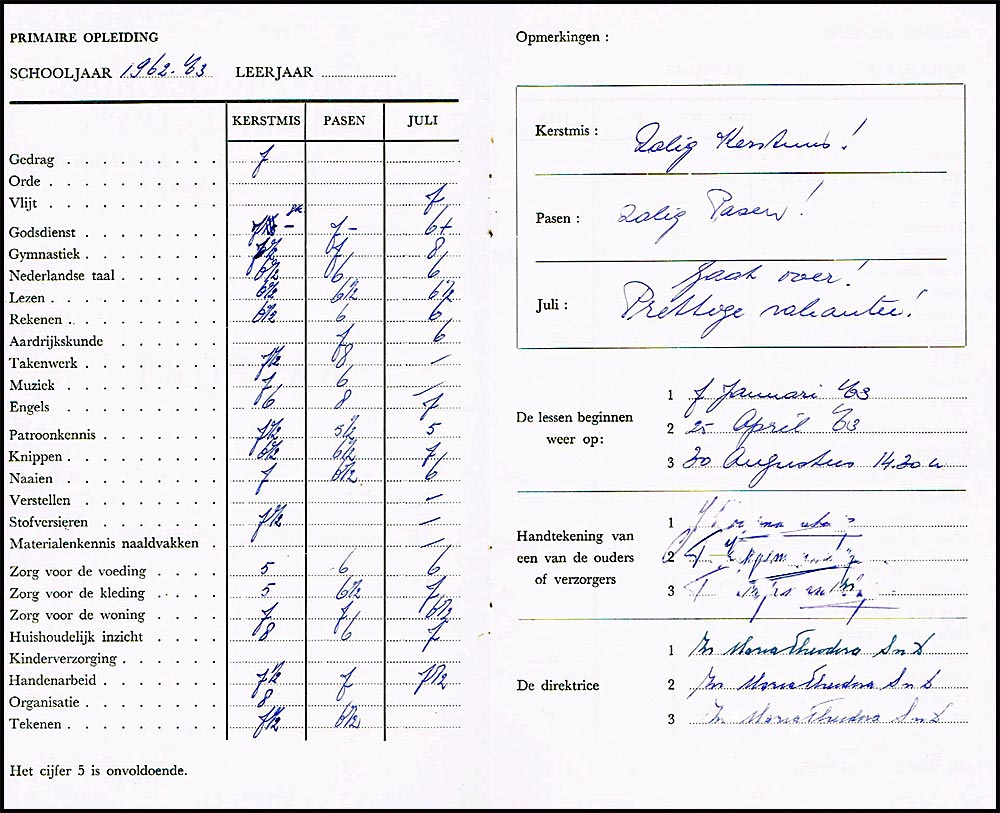 PRIMAIRE OPLEIDING
SCHOOLJAAR 1962-'63 LEERJAAR ..............
KERSTMIS PASEN JULI
Gedrag . . . . . . . . 7
Orde . . . . . . . .
Vlijt . . . . . . . . 7
Godsdienst . . . . . . . 7- 6+
Gymnastiek . . . . . . . 7 8
Nederlandse taal . . . . . 6½ 6 6
Lezen . . . . . . . . 6½ 6½ 6½
Rekenen . . . . . . . . 6½ 6 6
Aardrijkskunde . . . . . . 7 6
Takenwerk . . . . . . . 7½ 8 –
Muziek . . . . . . . . 7 6 –
Engels . . . . . . . . 6 8 7
Patroonkennis . . . . . . 7½ 5½ 5
Knippen . . . . . . . . 6½ 6½ 7
Naaien . . . . . . . . 7 6½ 6
Verstellen . . . . . . . –
Stofversieren . . . . . . 7½ –
Materialenkennis naaldvakken . –
Zorg voor de voeding . . . . 5 6 6
Zorg voor de kleding . . . . 5 6½ 7
Zorg voor de woning . . . . 7 7 6½
Huishoudelijk inzicht . . . . 8 6 7
Kinderverzorging . . . . . .
Handenarbeid . . . . . . 7½ 7 7½
Organisatie . . . . . . . 8
Tekenen . . . . . . . . 7½ 6½
Het cijfer 5 is onvoldoende.
Opmerkingen :
Kerstmis : Zalig Kerstmis!
Pasen : Zalig Pasen!
Gaat over!
Juli : Prettige vakantie!
De lessen beginnen weer op:
1 7 Januari '63
2 25 April '63
3 30 Augustus 14.30 u
Handtekening van een van de ouders of verzorgers
1
2
3
De direktrice
1 Zr Maria Theodora S.n.D
2 Zr Maria Theodora S.n.D
3 Zr Maria Theodora S.n.D